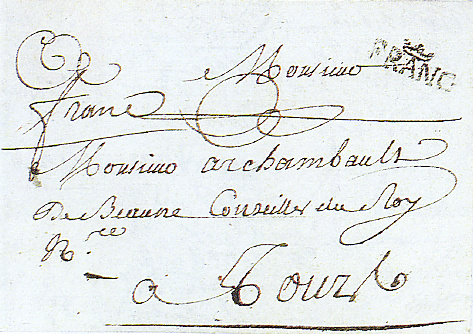 FRANC
Monsieur
franc
Monsieur archambault
De Beaune Conseiller du Roy
N.re
a Tours